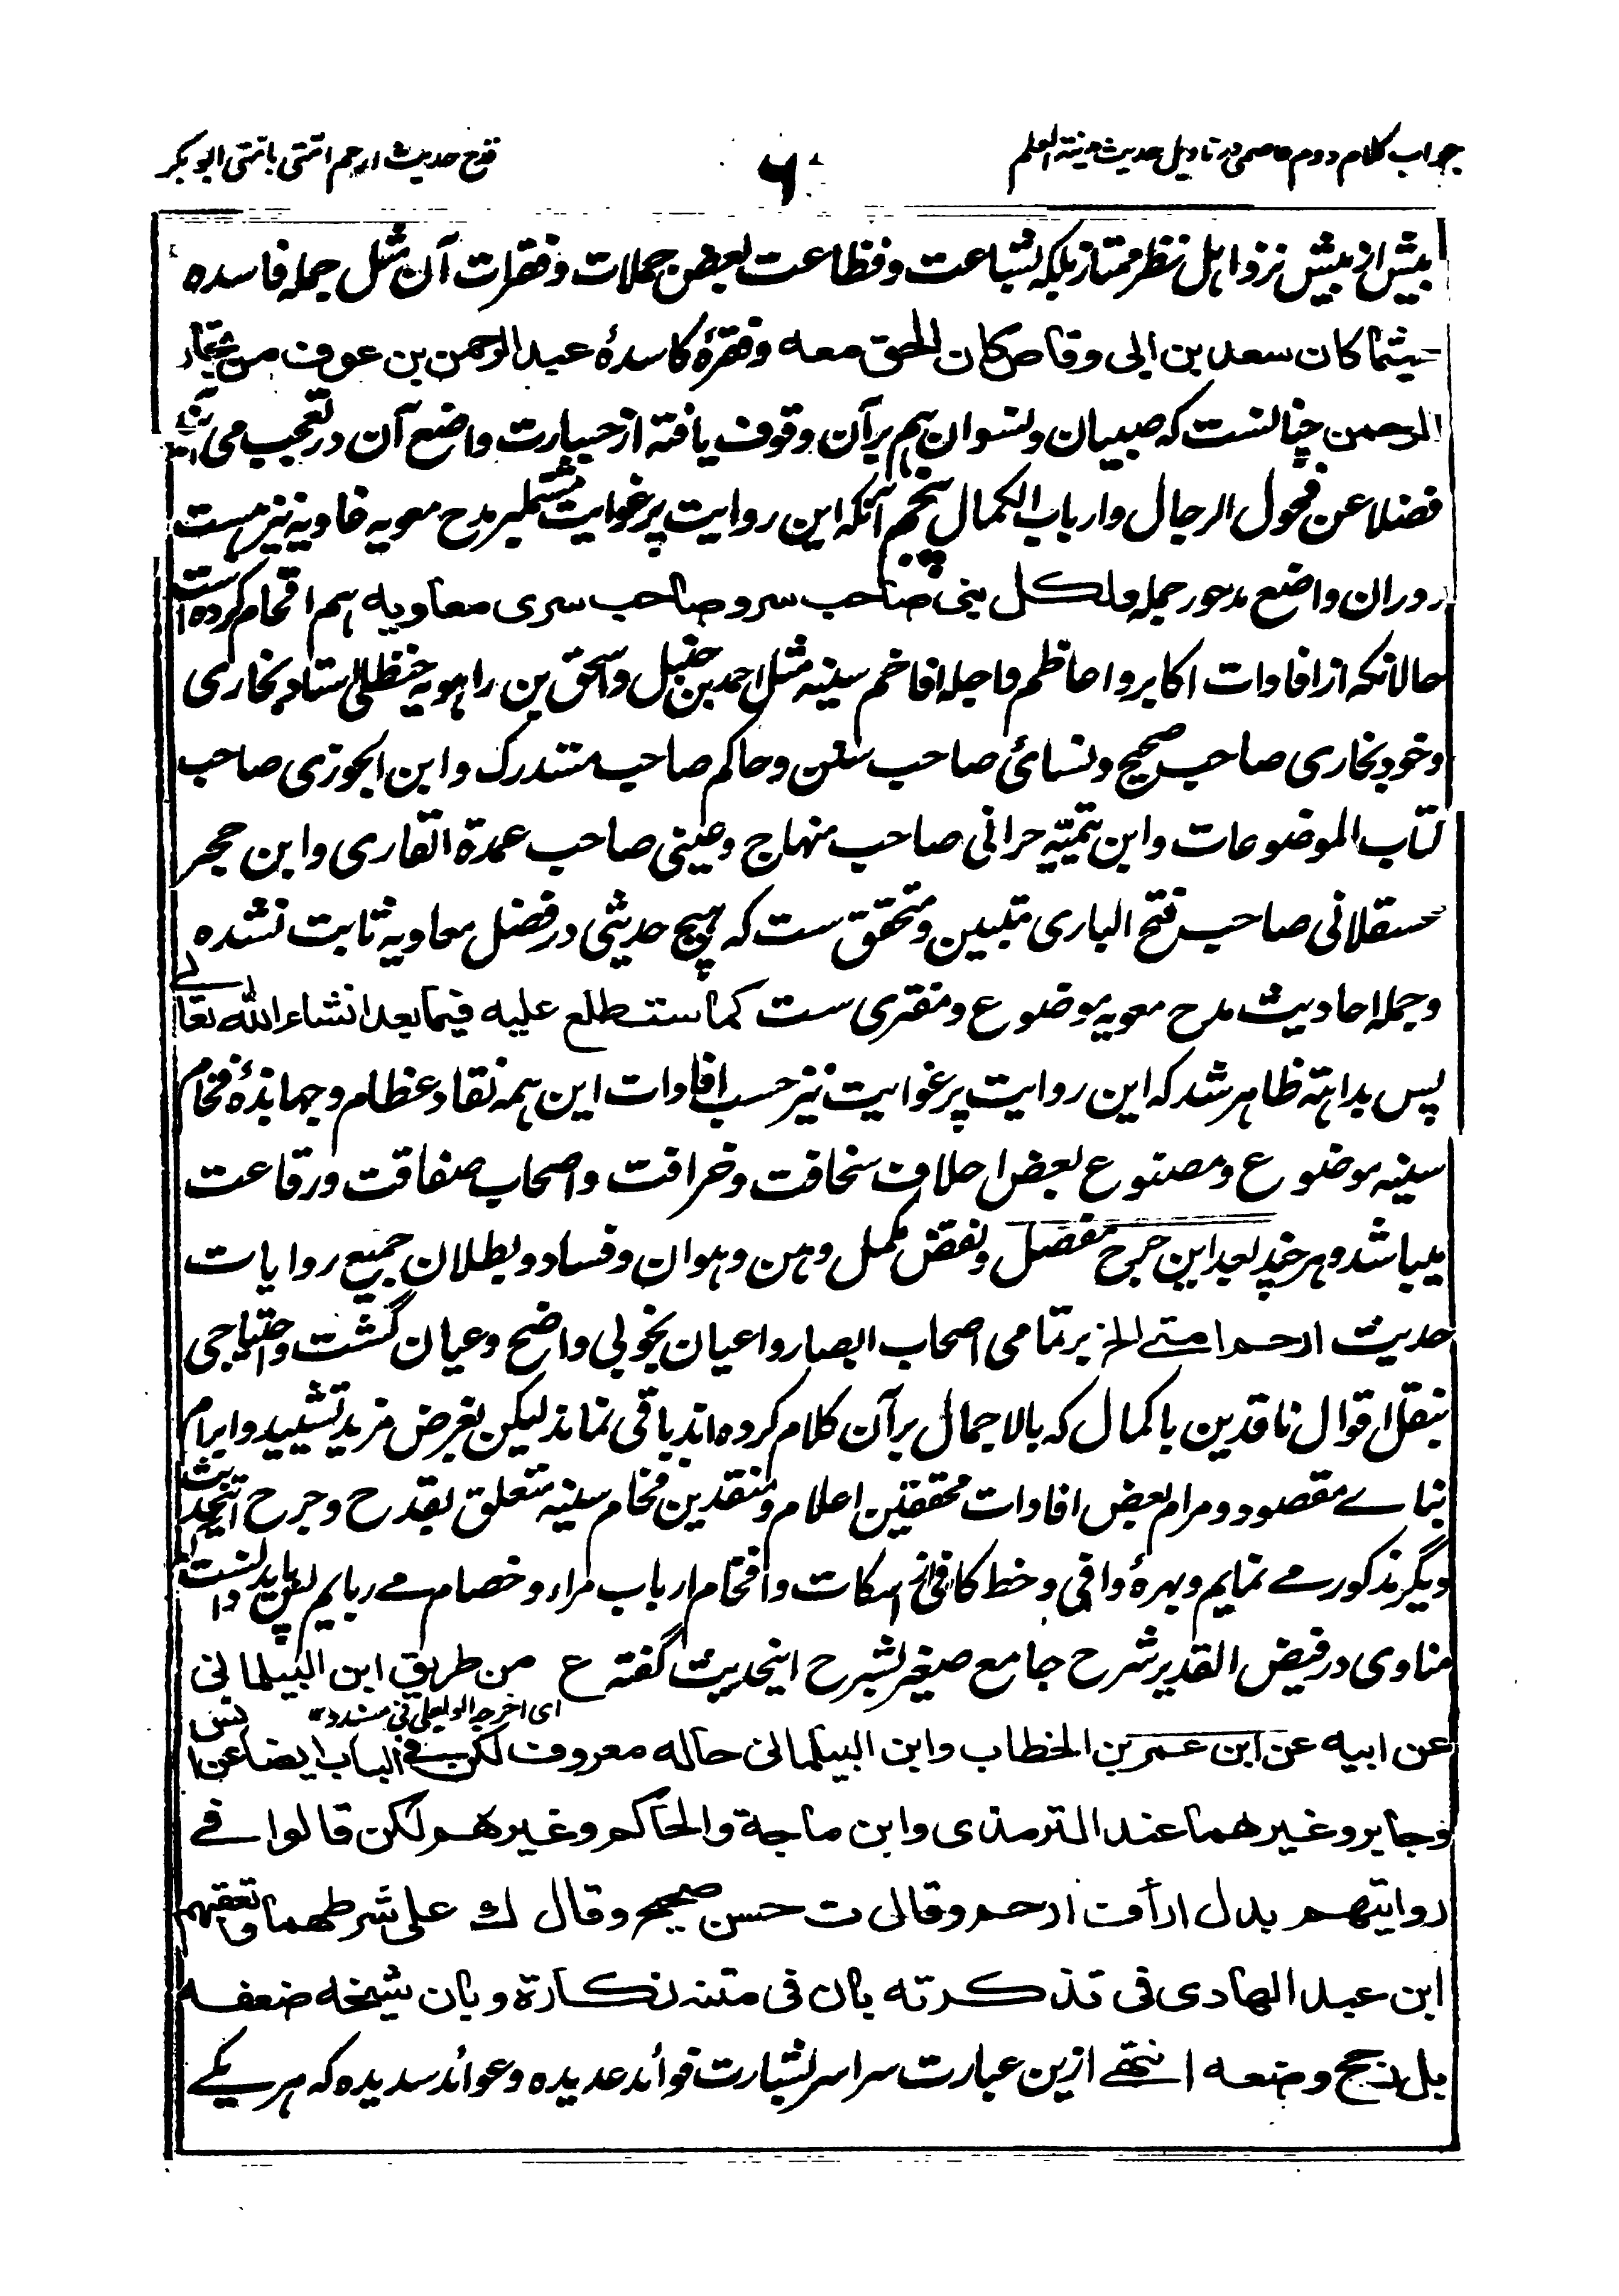 جواب کلام دوم عاصمی در تاویل حدیث مدینة العلم
۶
قدح حدیث ارحم امتی بامتی ابو بکر
بیش از بیش نزد اہل نظر ممتاز بلکہ بشاعت و فظاعت بعض جملات و فقرات آن مثل جملہ فاسدہ
حیثما کان سعد بن ابی وقاص کان الحق معه و فقرۂ کاسدۂ عبد الرحمن بن عوف من تجار
الرحمن چنانست کہ صبیان و نسوان ہم بر آن وقوف یافتہ از جسارت واضع آن در تعجب می آیند
فضلا عن فحول الرجال و ارباب الکمال پنجم آنکہ این روایت پر غوایت مشتمل بر مدح معویہ غاویہ نیز ہست
و در ان واضع مدحور جملہ ولکل نبی صاحب سر و صاحب سری معاویه ہم اقحام کردہ است
حالانکہ از افادات اکابر و اعاظم و اجلہ افاخم سنیہ مثل احمد بن حنبل و اسحق بن راہویہ حنظلی استاد بخاری
و خود بخاری صاحب صحیح و نسائی صاحب سنن و حاکم صاحب مستدرک و ابن الجوزی صاحب
کتاب الموضوعات و ابن تیمیہ حرانی صاحب منہاج و عینی صاحب عمدة القاری و ابن حجر
عسقلانی صاحب فتح الباری متبین و متحقق ست کہ ہیچ حدیثی در فضل معاویہ ثابت نشدہ
و جملہ احادیث مدح معویہ موضوع و مفتری ست کما ستطلع علیه فیما بعد انشاء الله تعالے
پس بداہتہ ظاہر شد کہ این روایت پر غوایت نیز حسب افادات این ہمہ نقاد عظام و جہابذۂ فخام
سنیہ موضوع و مصنوع بعض اجلاف سخافت و خرافت و اصحاب صفاقت و رقاعت
میباشد و ہر چند بعد این جرح مفصل و نقض مکمل وہن و ہوان و فساد و بطلان جمیع روایات
حدیث ارحم امتے الخ بر تمامی اصحاب ابصار و اعیان بخوبی واضح و عیان گشت و احتیاجی
بنقل اقوال ناقدین با کمال کہ بالاجمال بر آن کلام کردہ اند باقی نماند لیکن بغرض مزید تشیید و ابرام
بنائے مقصود و مرام بعض افادات محققین اعلام و منقدین فخام سنیہ متعلق بقدح و جرح اینحدیث
دیگر مذکور مے نمایم و بہرۂ وافی و حظ کافی از اسکات و افحام ارباب مراء و خصام مے ربایم پس باید دانست کہ
مناوی در فیض القدیر شرح جامع صغیر بشرح اینحدیث گفتہ ع من طریق ابن البیلمانی
ای اخرجہ ابو یعلی فی مسندہ
عن ابیه عن ابن عمر بن الخطاب وابن البیلمانی حاله معروف لکن فے الباب ایضا عن انس
وجابر وغیرهما عند الترمذی وابن ماجة والحاکم وغیرهم لکن قالوا فے
روایتهم بدل ارأف ارحم وقال ت حسن صحیح وقال ك علی شرطهما وتعقبهم
ابن عبد الهادی فی تذکرته بان فی متنه نکارة وبان شیخه ضعفه
بل رجح وضعه انتهے ازین عبارت سراسر بشارت فوائد عدیدہ و عوائد سدیدہ کہ ہر یکے